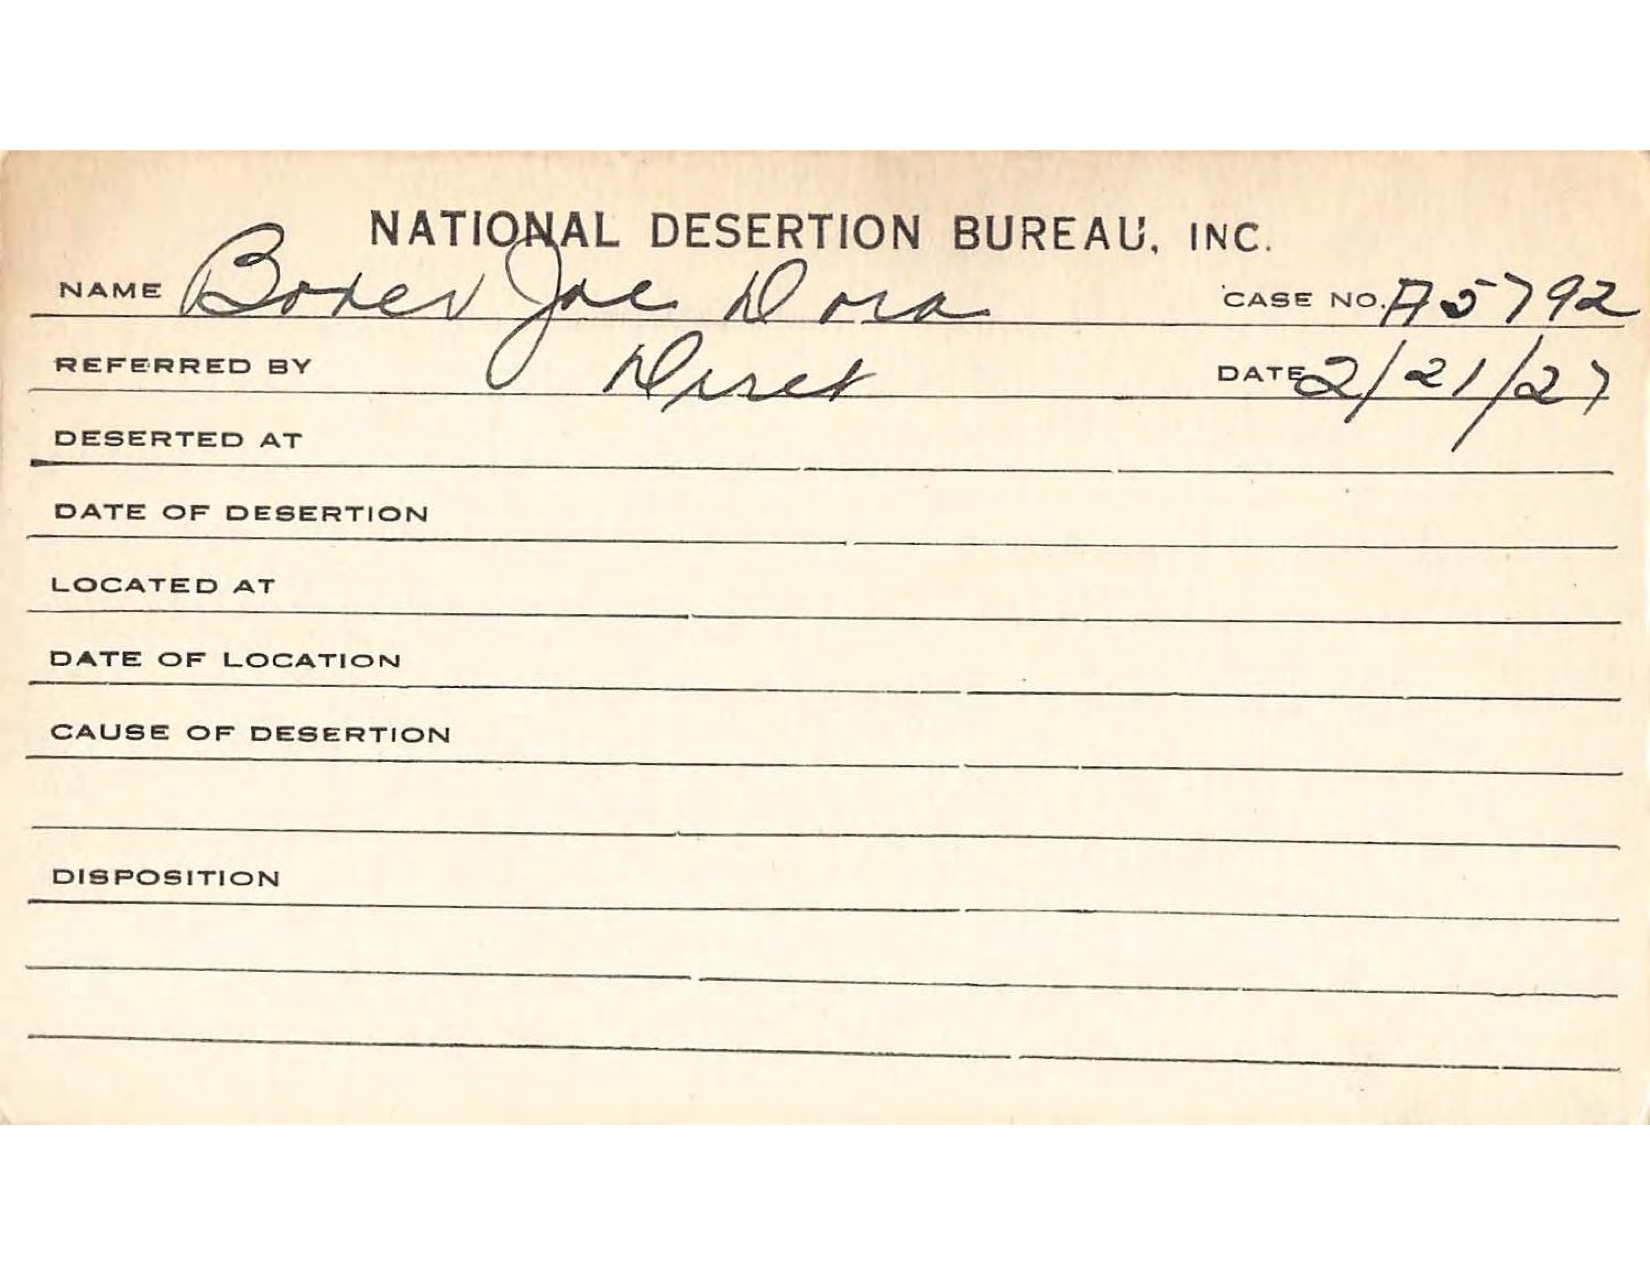 NATIONAL DESERTION BUREAU, INC.
NAME Boxer Joe Dora CASE NO. A5792
REFERRED BY Direct DATE 2/21/27
DESERTED AT
DATE OF DESERTION
LOCATED AT
DATE OF LOCATION
CAUSE OF DESERTION
DISPOSITION